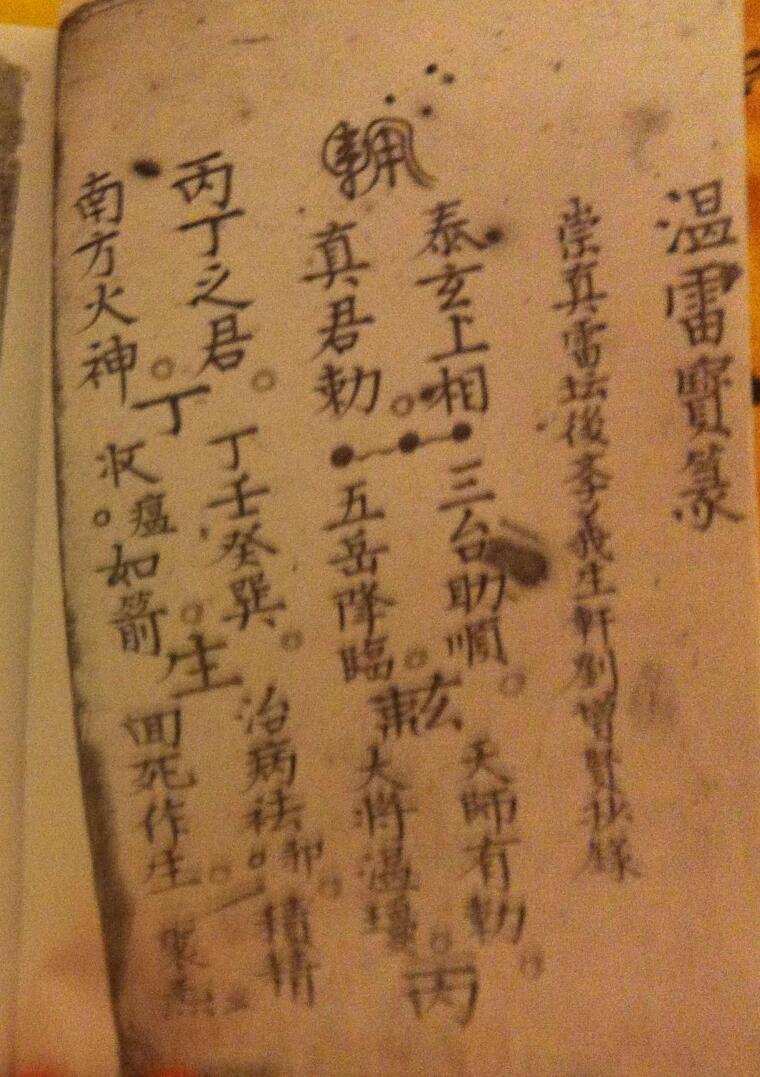 温雷寳篆
崇真雷坛後孝義生軒劉増賢抄錄
泰玄上相 三台助順 天師有勅
真君勅 五岳降臨 大將温瓊
丙
丙丁之君 丁壬癸巽 治病祛 卸
南方火神 丁 收瘟 如箭 生 回死作生